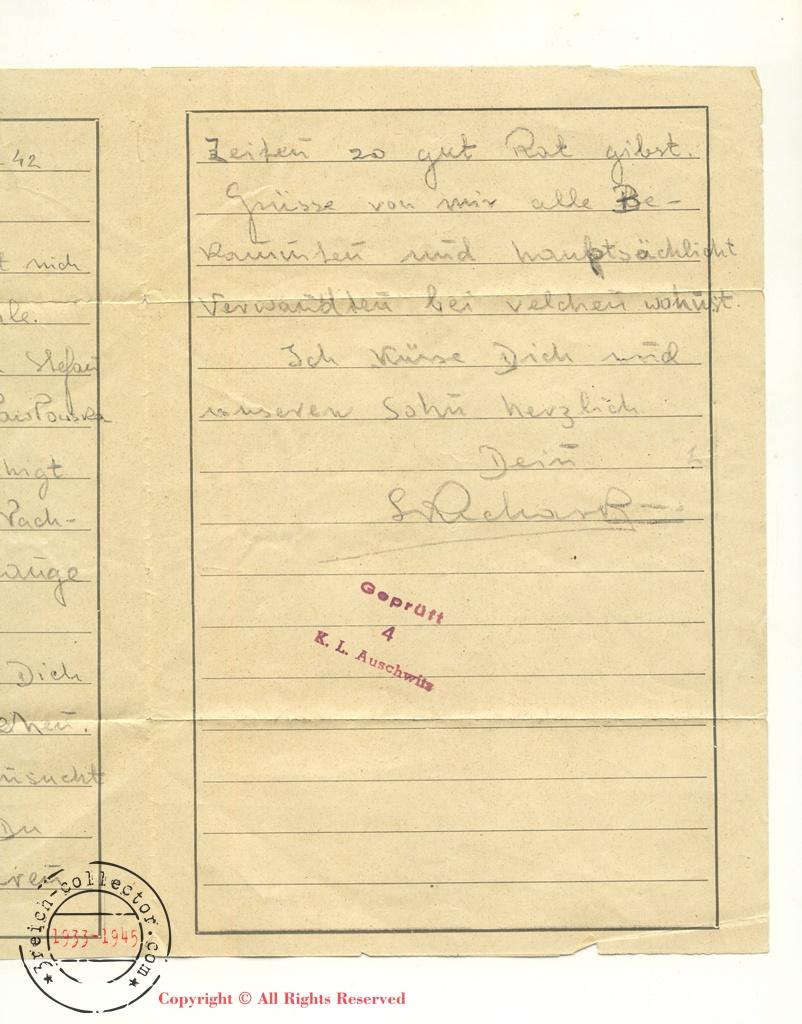 42
nich
le.
Stefan
higt
Wach-
ange
Dich
ehen.
nsucht
Du
ren
Zeiten so gut Rat gibst.
Grüsse von mir alle Be-
kannten und hauptsächlicht
Verwandten bei velchen wohnst.
Ich Küsse Dich und
unseren Sohn herzlich
Dein
Geprüft
4
K. L. Auschwitz
3reich-collector.com
1933-1945
Copyright © All Rights Reserved